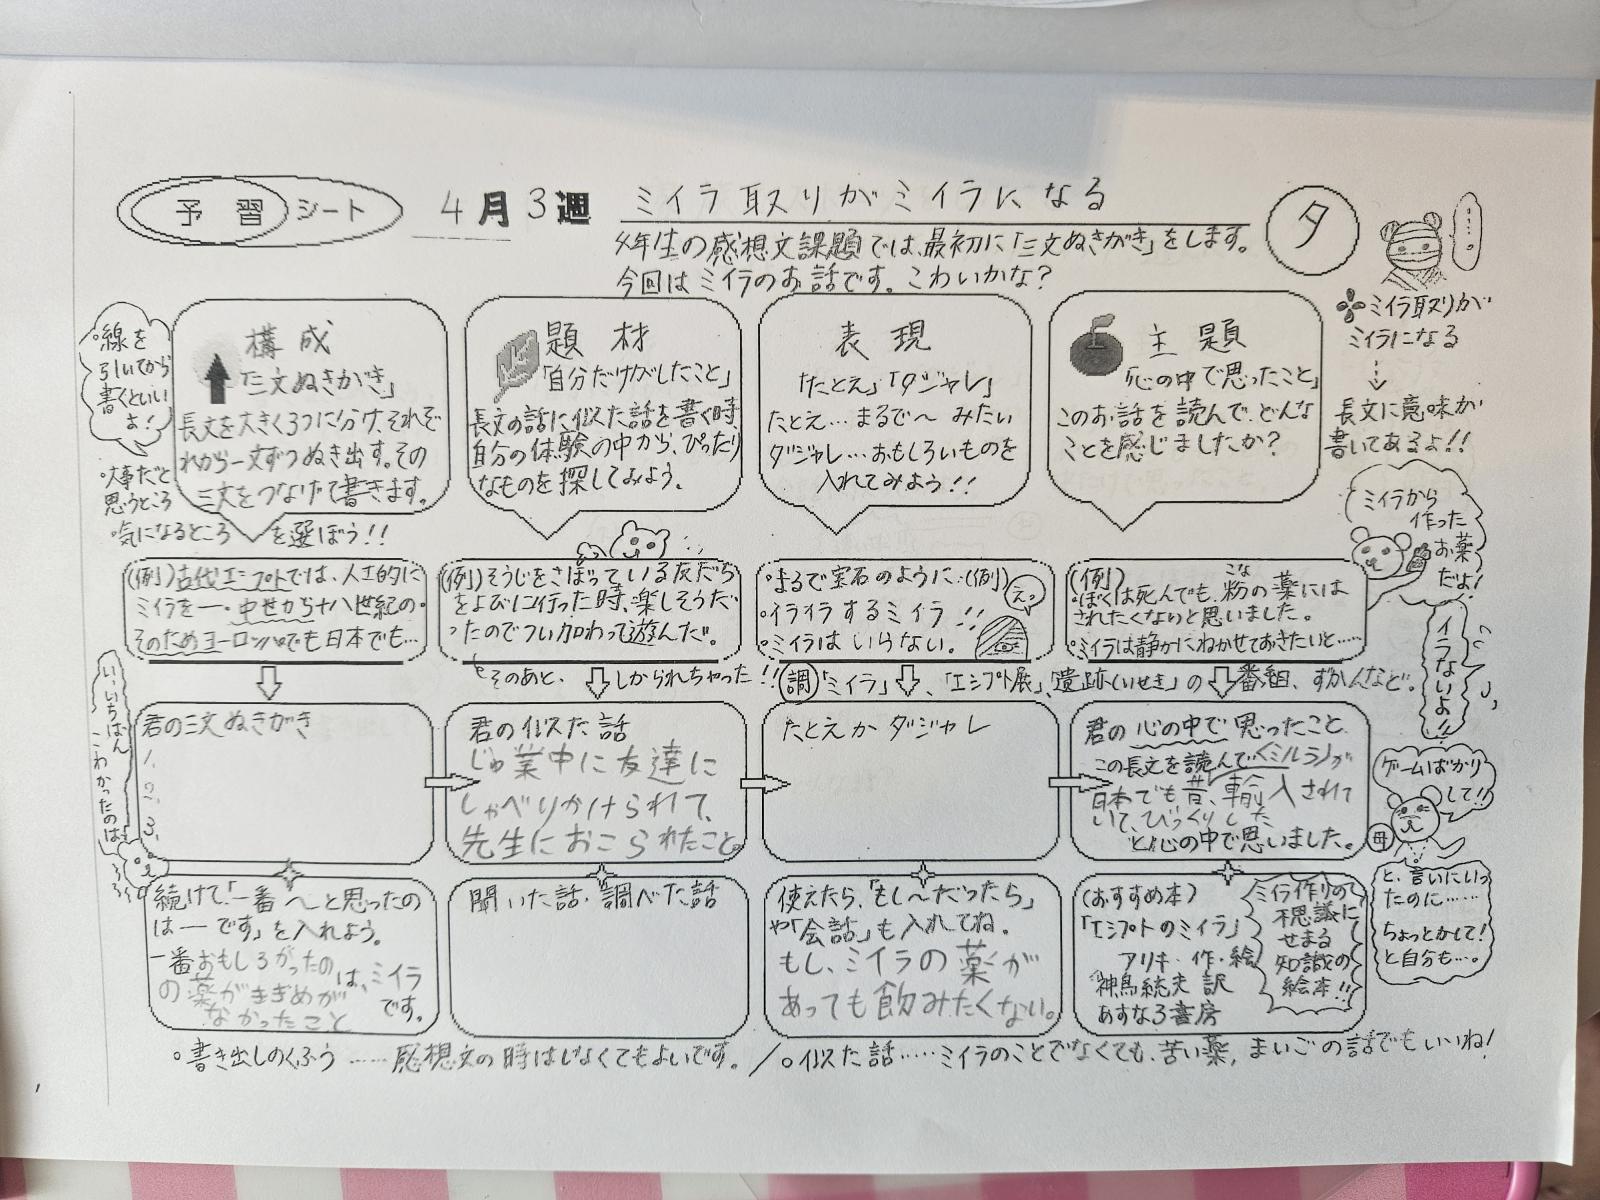 予習シート
4月3週
ミイラ取りがミイラになる
夕
4年生の感想文課題では、最初に「三文ぬきがき」をします。
今回はミイラのお話です。こわいかな？
…。
ミイラ取りが
ミイラになる
長文に意味が
書いてあるよ！！
線を
引いてから
書くといい
よ！
・大事だと
思うところ
・気になるところ
を選ぼう！！
構成
「三文ぬきがき」
長文を大きく3つに分け、それぞ
れから一文ずつぬき出す。その
三文をつなげて書きます。
題材
「自分だけがしたこと」
長文の話に似た話を書く時、
自分の体験の中から、ぴったり
なものを探してみよう。
表現
「たとえ」「ダジャレ」
たとえ…まるで〜みたい
ダジャレ…おもしろいものを
入れてみよう！！
主題
「心の中で思ったこと」
このお話を読んで、どんな
ことを感じましたか？
ミイラから
作った
お薬
だよ！
イラないよ！！
(例)古代エジプトでは、人工的に
ミイラを一・中世から十八世紀の・
そのためヨーロッパでも日本でも…
(例)そうじをさぼっている友だち
をよびに行った時、楽しそうだ
ったのでつい加わって遊んだ。
そのあと、しかられちゃった！！
・まるで宝石のように(例)
・イライラするミイラ！！
・ミイラはいらない。
えっ
(例)
・ぼくは死んでも、粉の薬には
こな
されたくないと思いました。
・ミイラは静かにねかせておきたいと……
調「ミイラ」、「エジプト展」、「遺跡(いせき)」の番組、ずかんなど。
いっちばん
こわかったのは
君の三文ぬきがき
1.
2.
3.
君の似た話
じゅ業中に友達に
しゃべりかけられて、
先生におこられたこと。
たとえかダジャレ
君の心の中で思ったこと
この長文を読んで〈ミルラ〉が
日本でも昔、輸入されて
いて、びっくりした
と心の中で思いました。
ゲームばかり
して！！
母
と、言いにいっ
たのに……
ちょっとかして！
と自分も…。
続けて「一番〜と思ったの
は―です」を入れよう。
一番おもしろかったの
は、ミイラ
の薬がききめが
なかったこと
です。
聞いた話・調べた話
使えたら、「もし〜だったら」
や「会話」も入れてね。
もし、ミイラの薬が
あっても飲みたくない。
(おすすめ本)
「エジプトのミイラ」
アリキ・作・絵
神鳥統夫 訳
あすなろ書房
ミイラ作りの
不思議に
せまる
知識の
絵本！！
○書き出しのくふう……感想文の時はしなくてもよいです。／○似た話……ミイラのことでなくても、苦い薬、まいごの話でもいいね！